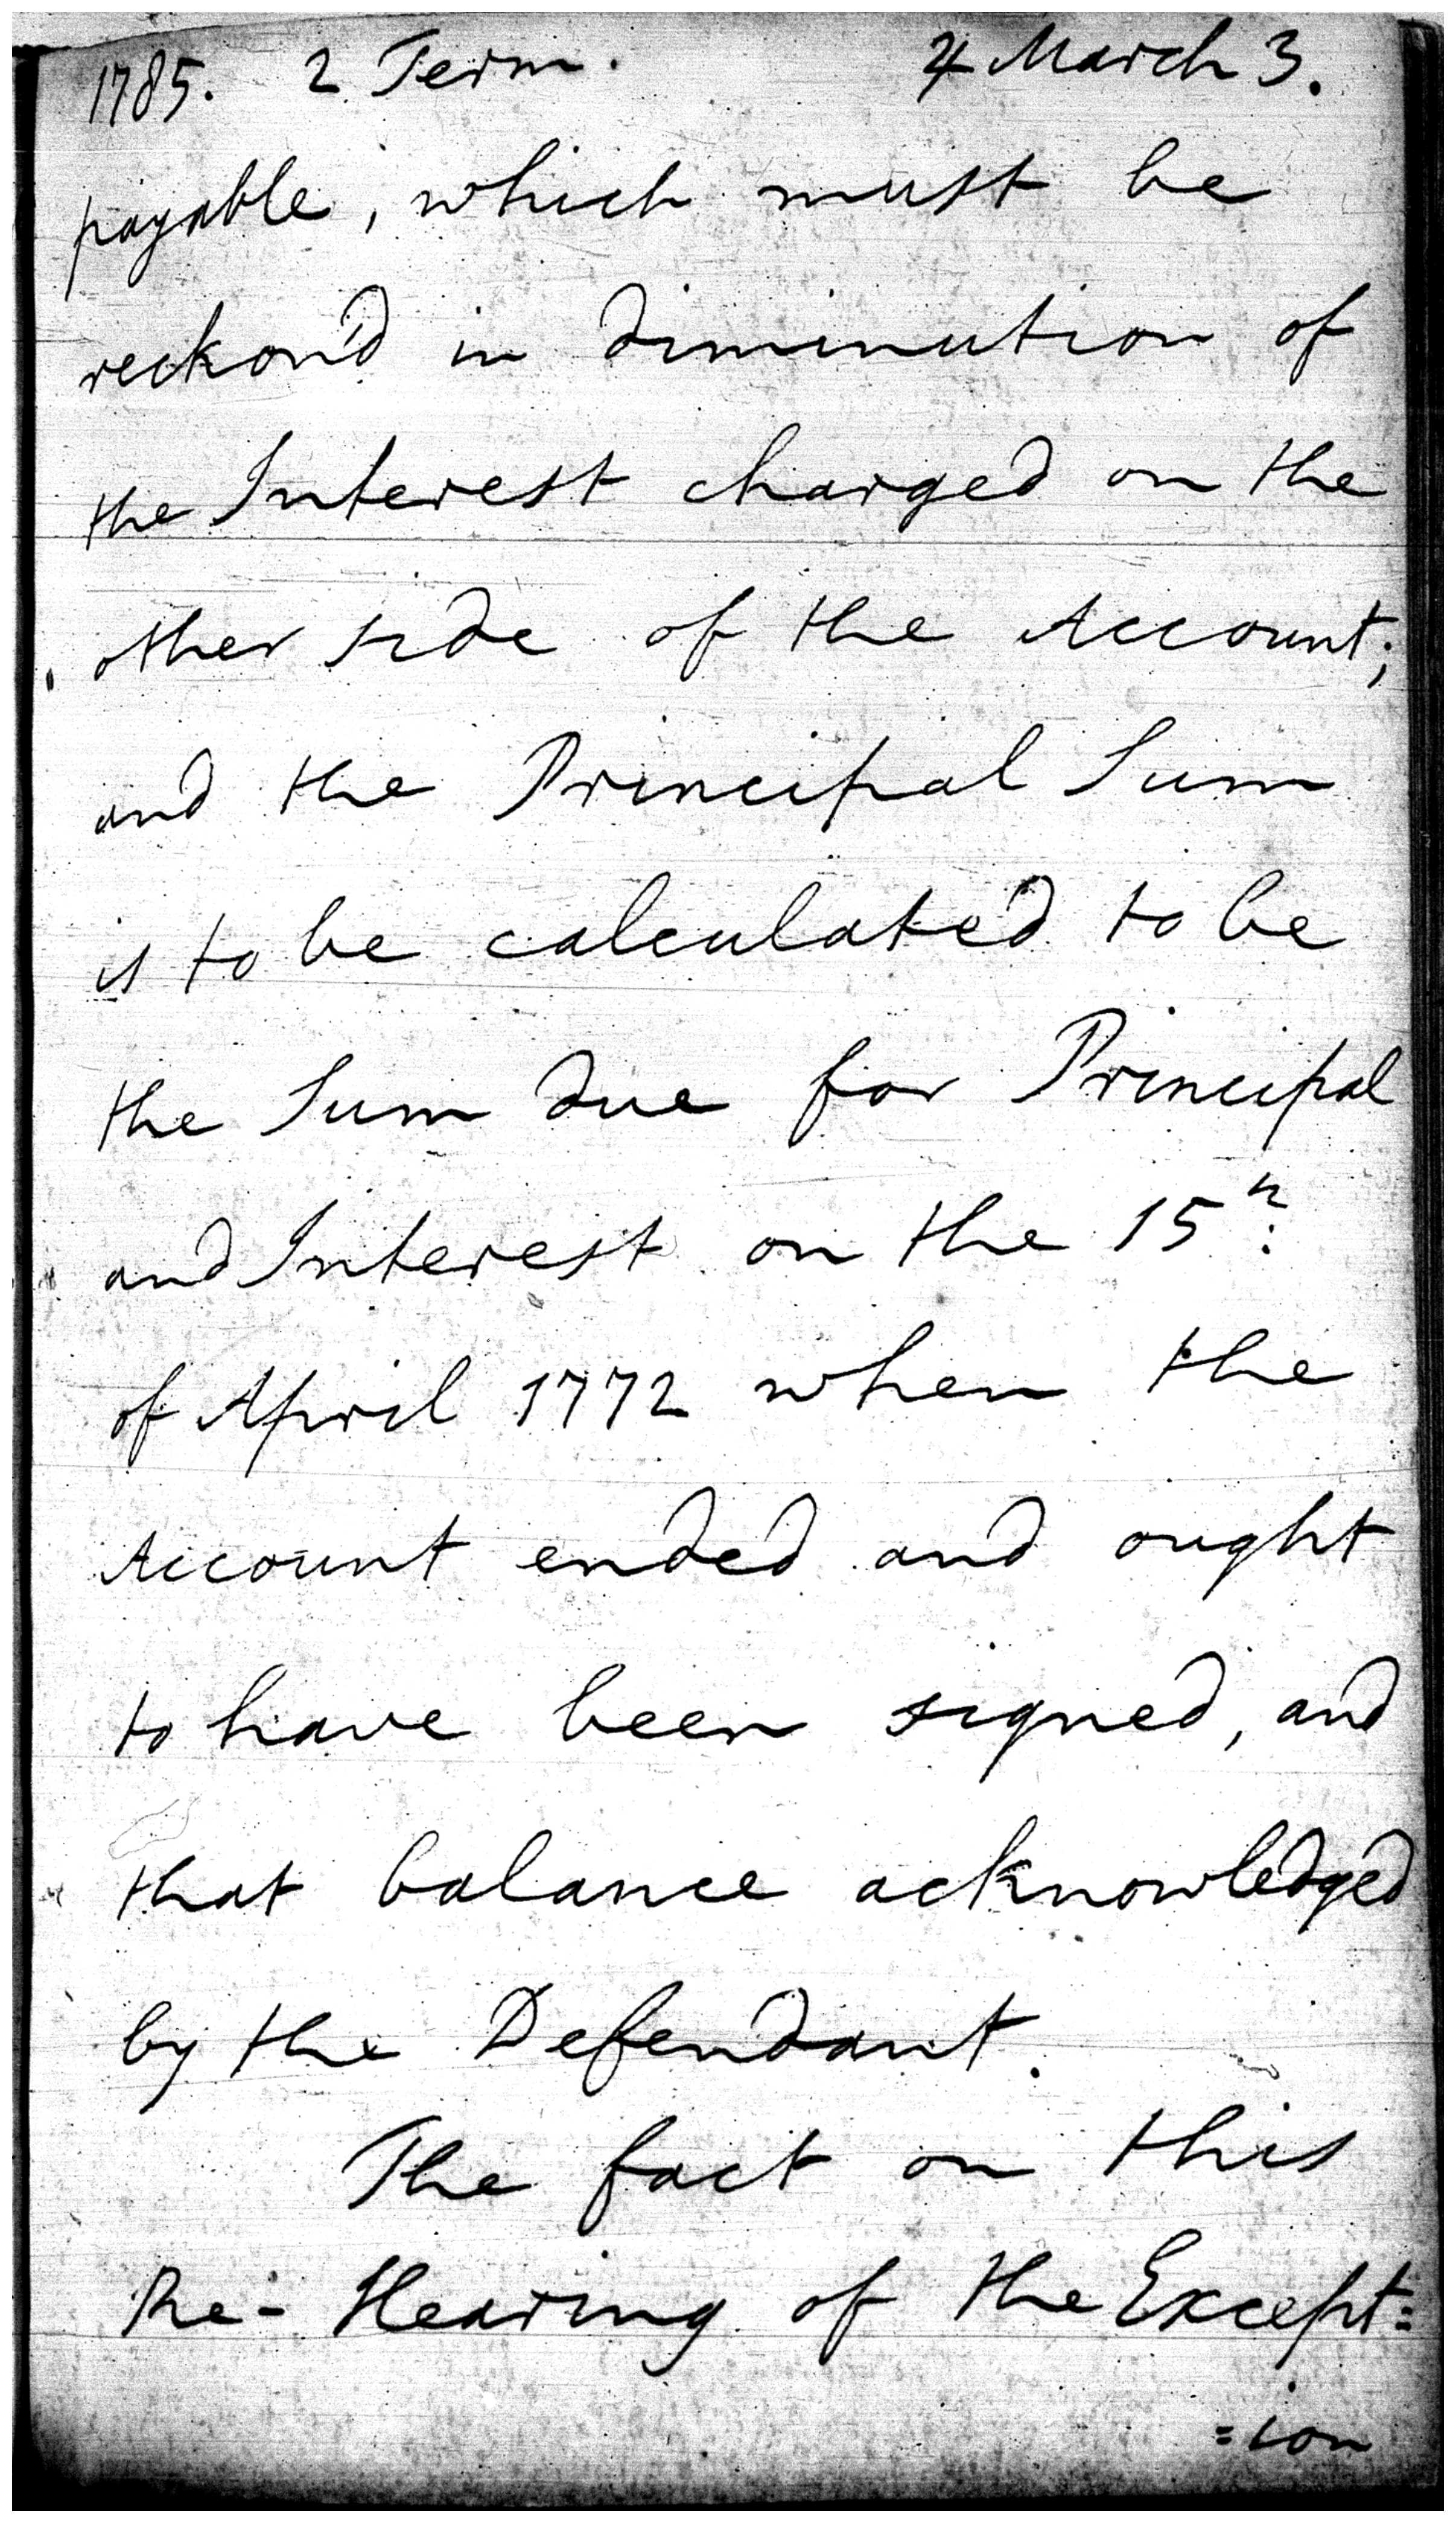 1785. 2 Term. 4 March 3.
payable, which must be
reckon'd in diminution of
the Interest charged on the
other side of the Account;
and the Principal Sum
is to be calculated to be
the Sum due for Principal
and Interest on the 15th
of April 1772 when the
Account ended and ought
to have been signed, and
that balance acknowledged
by the Defendant.
The fact on this
Re-Hearing of the Except=
=ion